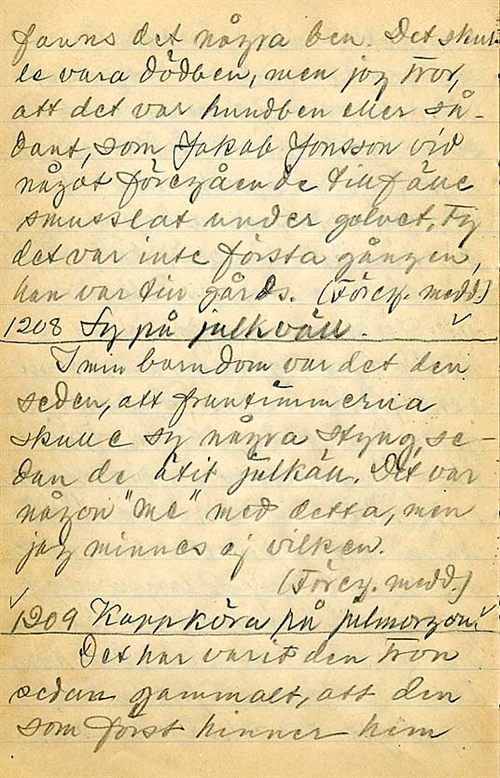 fanns det några ben. Det skul-
le vara dödben, men jag tror,
att det var hundben eller så-
dant, som Jakob Jonsson vid
något föregående tillfälle
smusslat under golvet, ty
det var inte första gången,
han var till gårds. (Föreg. medd.)
1208 Sy på julkväll.
I min barndom var det den
seden, att fruntimmerna
skulle sy några styng, se-
dan de ätit julkäll. Det var
någon "me" med detta, men
jag minnes ej vilken.
(Föreg. medd.)
1209 Kappköra på julmorgon.
Det har varit den tron
sedan gammalt, att den
som först hinner hem